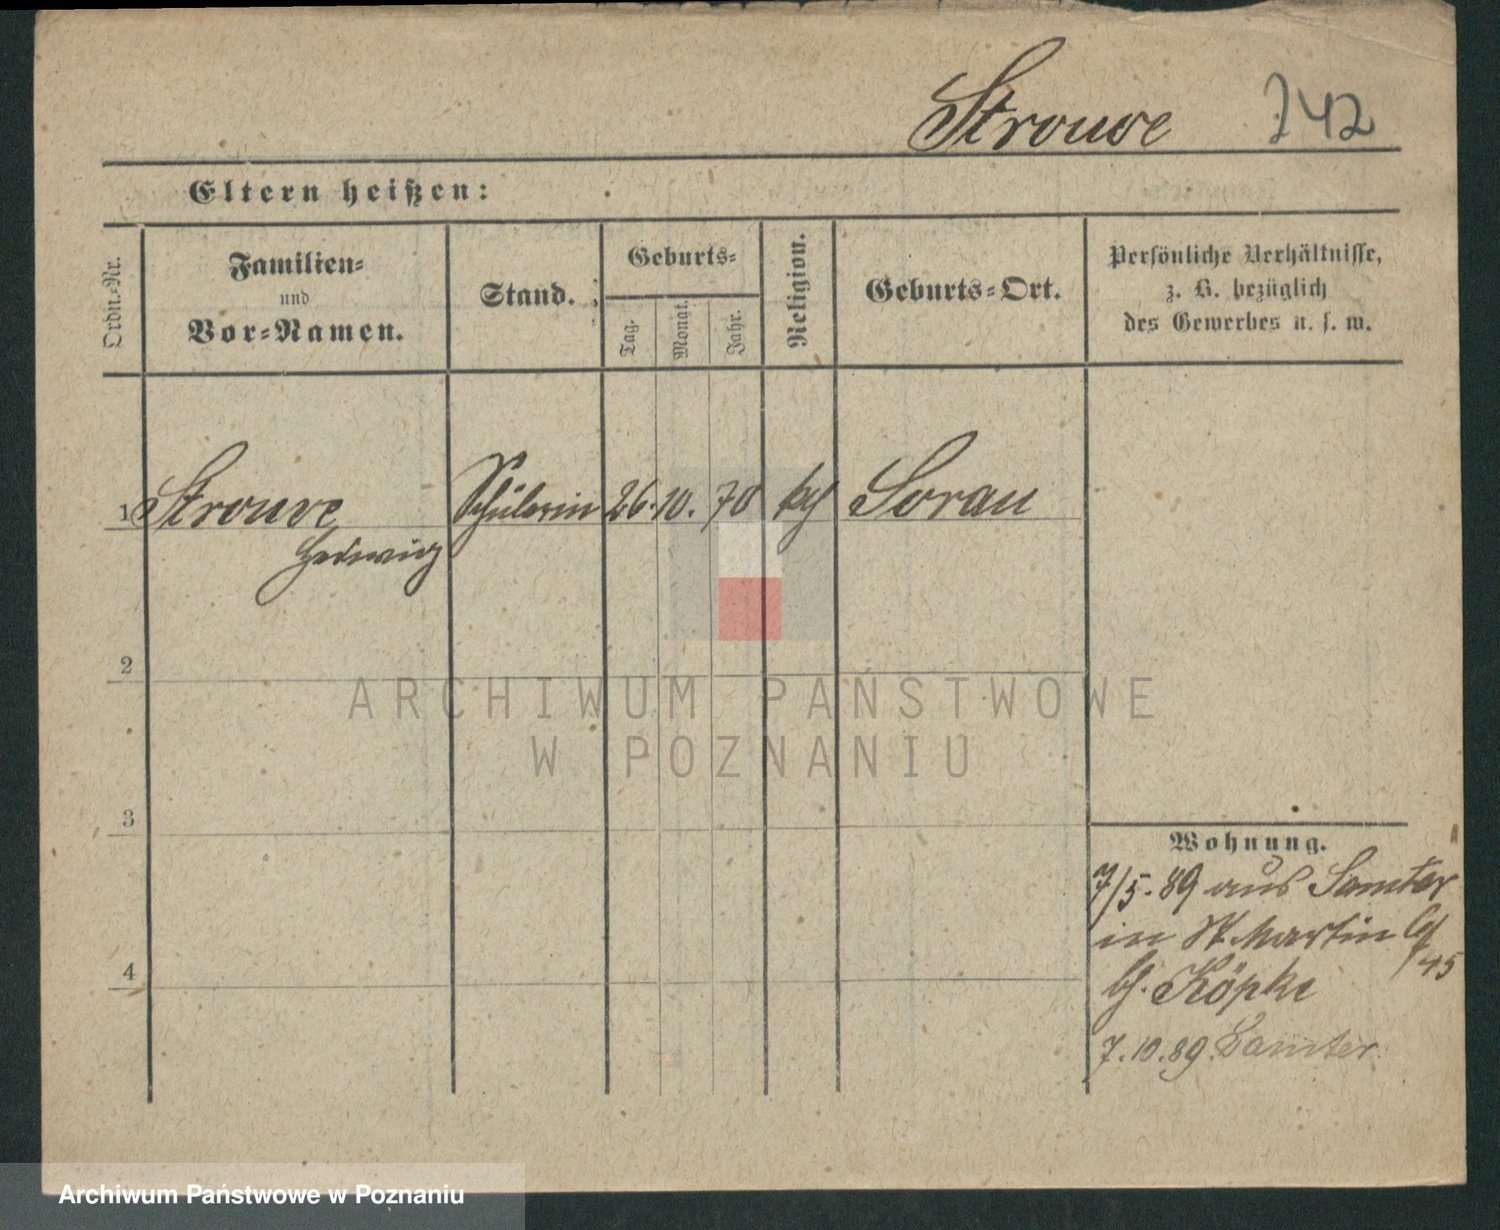 Strouve 742
Eltern heißen:
Ordn.-Nr.
Familien-
und
Vor-Namen.
Stand.
Geburts-
Tag.
Monat.
Jahr.
Religion.
Geburts-Ort.
Persönliche Verhältnisse,
z. B. bezüglich
des Gewerbes u. s. w.
1 Strouve Schülerin 26. 10. 70 Sorau
Hedwig
2
ARCHIWUM PAŃSTWOWE
W POZNANIU
3
Wohnung.
7/5. 89 aus Samter
in St. Martin
45
bei Köpke
4
7. 10. 89. Samter.
Archiwum Państwowe w Poznaniu